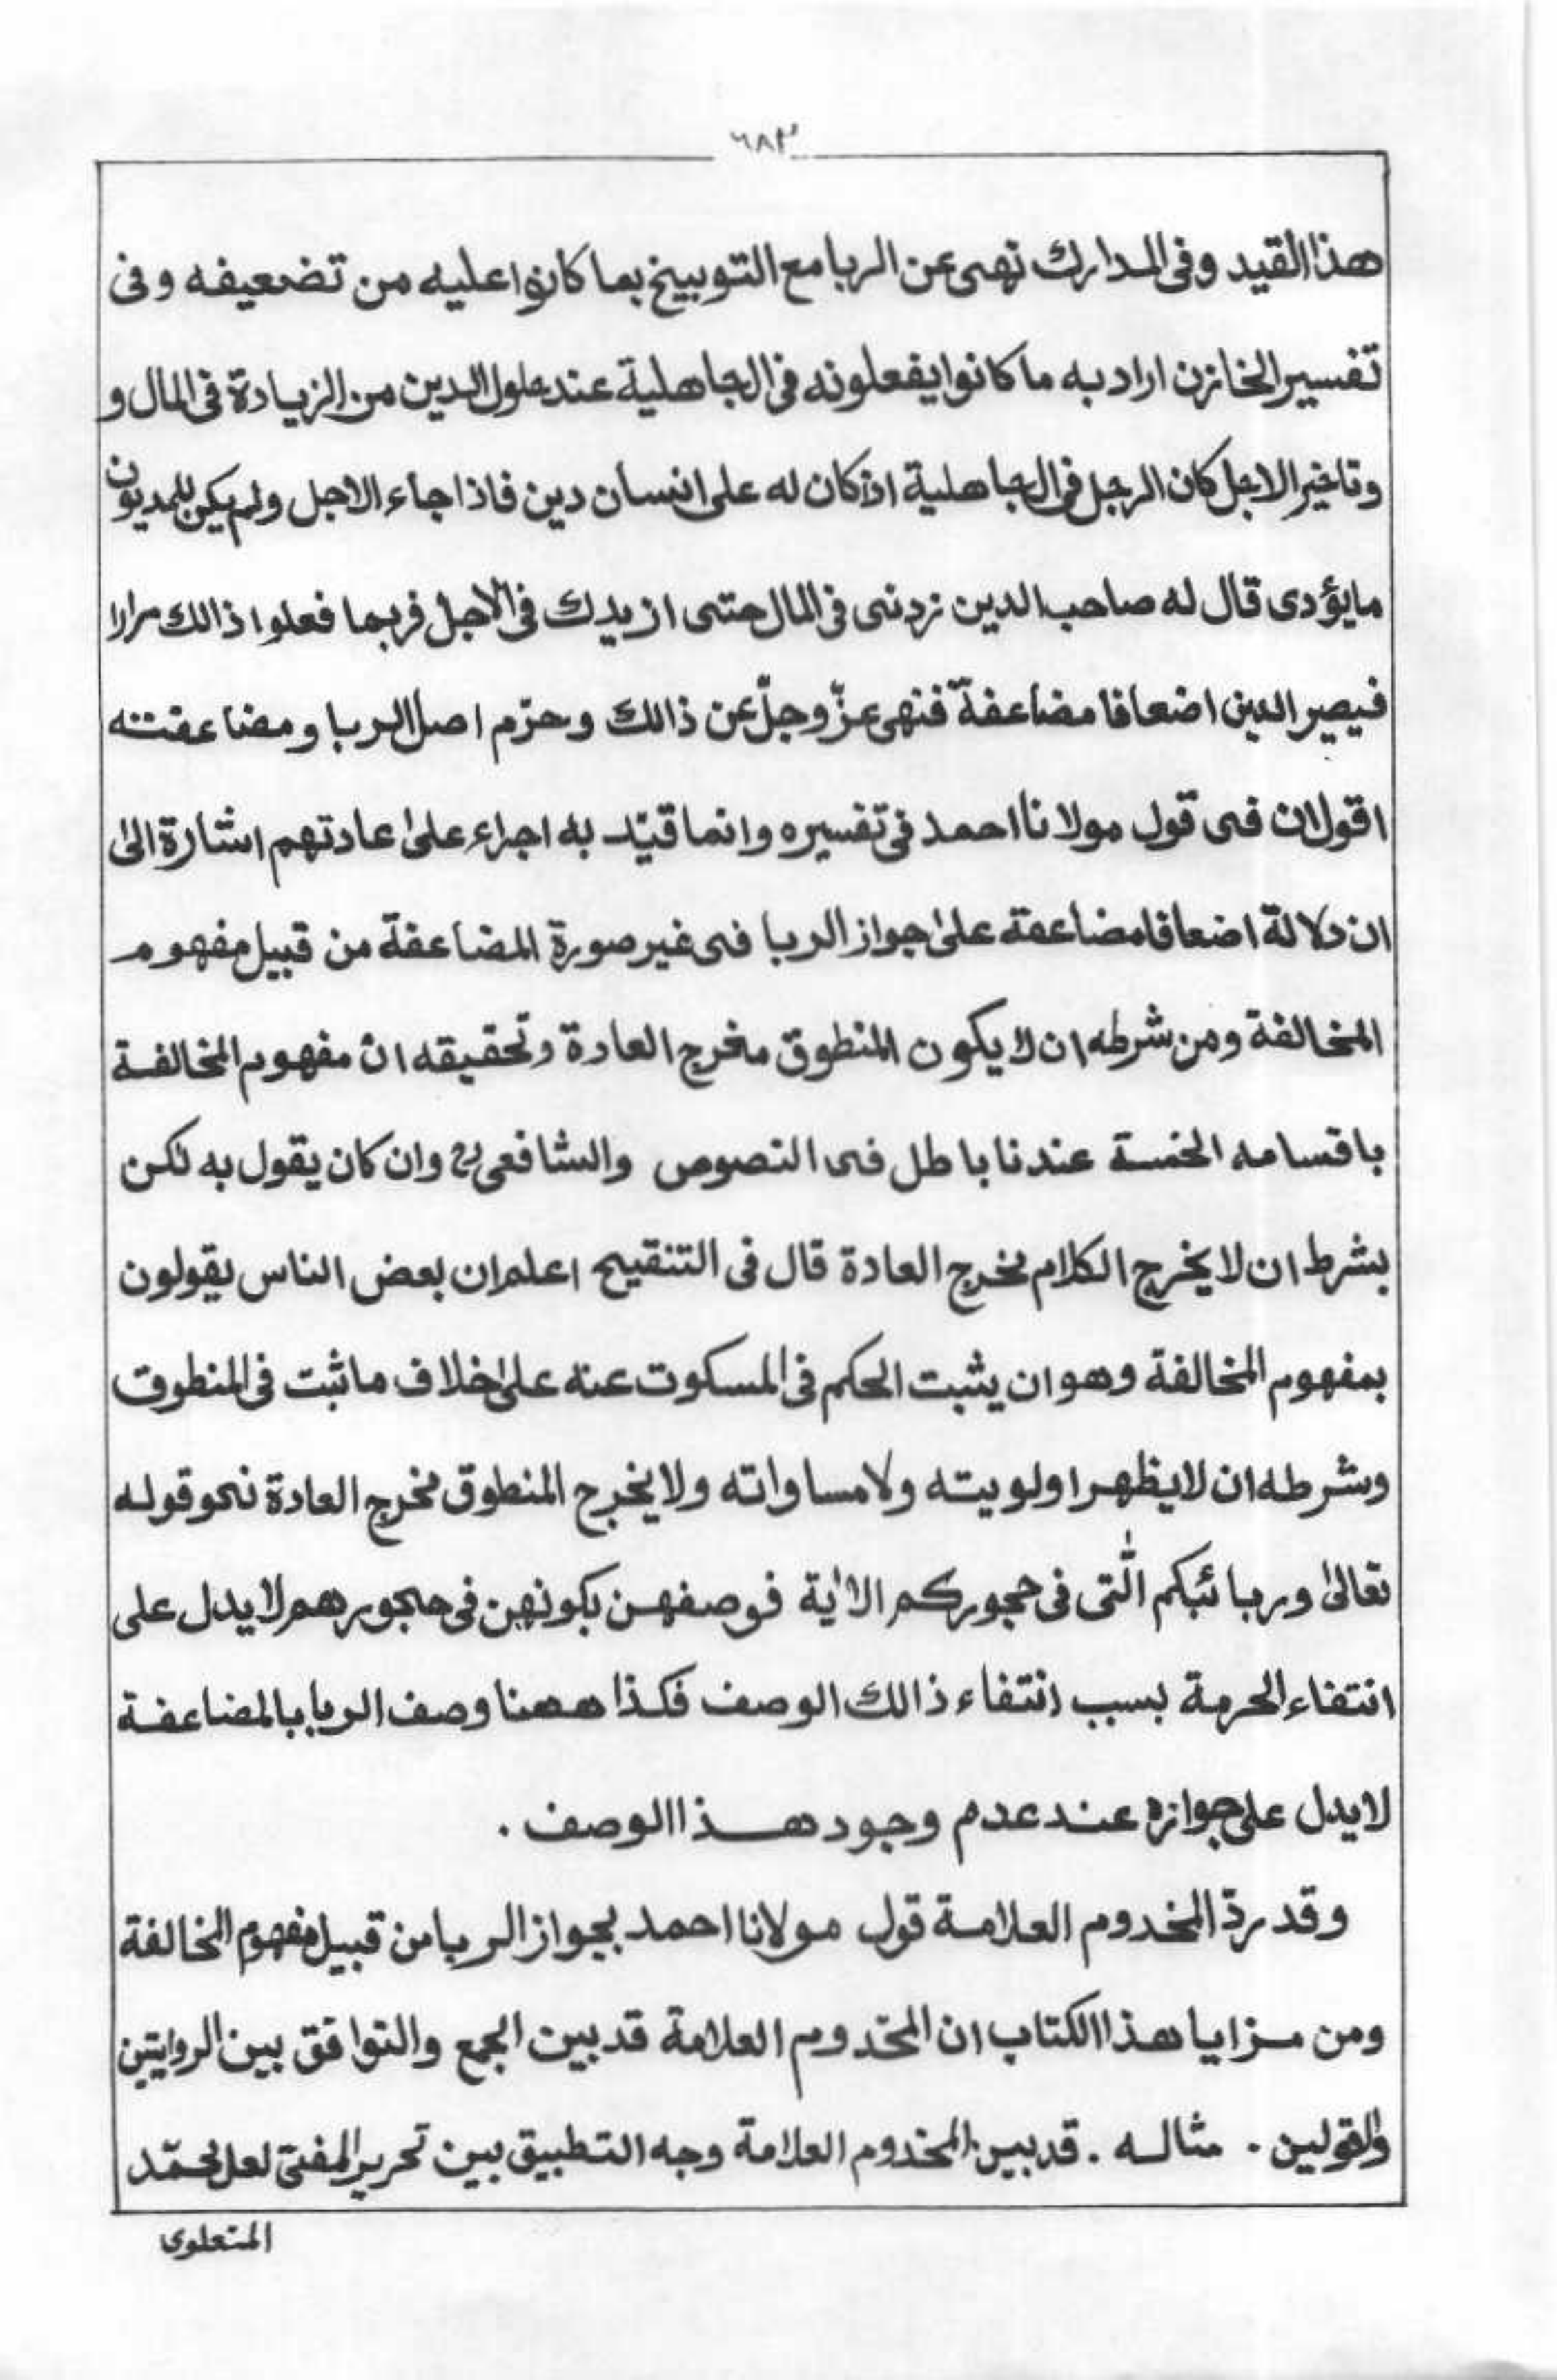 ٦٨٣
هذا القيد وفى المدارك نهى عن الربا مع التوبيخ بما كانوا عليه من تضعيفه وفى
تفسير الخازن اراد به ما كانوا يفعلونه فى الجاهلية عند حلول الدين من الزيادة فى المال و
وتاخير الاجل كان الرجل فى الجاهلية اذا كان له على انسان دين فاذا جاء الاجل ولم يكن للمديون
مايؤدى قال له صاحب الدين زدنى فى المال حتى ازيدك فى الاجل فربما فعلوا ذالك مرارا
فيصير الدين اضعافا مضاعفة فنهى عزّ وجلّ عن ذالك وحرّم اصل الربا ومضاعفته
اقول ان فى قول مولانا احمد فى تفسيره وانما قيّد به اجراء علىٰ عادتهم اشارة الىٰ
ان دلالة اضعافا مضاعفة علىٰ جواز الربا فى غير صورة المضاعفة من قبيل مفهوم
المخالفة ومن شرطه ان لا يكون المنطوق مخرج العادة وتحقيقه انّ مفهوم المخالفة
باقسامه الخمسة عندنا باطل فى النصوص والشافعى رح وان كان يقول به لكن
بشرط ان لا يخرج الكلام مخرج العادة قال فى التنقيح اعلم ان بعض الناس يقولون
بمفهوم المخالفة وهو ان يثبت الحكم فى المسكوت عنه علىٰ خلاف ما ثبت فى المنطوق
وشرطه ان لا يظهر اولويته ولا مساواته ولا يخرج المنطوق مخرج العادة نحو قوله
تعالىٰ وربائبكم الّٰتى فى حجوركم الاٰية فوصفهن بكونهن فى حجورهم لا يدل على
انتفاء الحرمة بسبب انتفاء ذالك الوصف فكذا ههنا وصف الربا بالمضاعفة
لا يدل على جوازه عند عدم وجود هذا الوصف .
وقد ردّ المخدوم العلامة قول مولانا احمد بجواز الربا من قبيل مفهوم المخالفة
ومن مزايا هذا الكتاب ان المخدوم العلامة قد بين الجمع والتوافق بين الروايتين
والقولين . مثاله . قد بين المخدوم العلامة وجه التطبيق بين تحرير المفتى لعل محمّد
المتعلوى